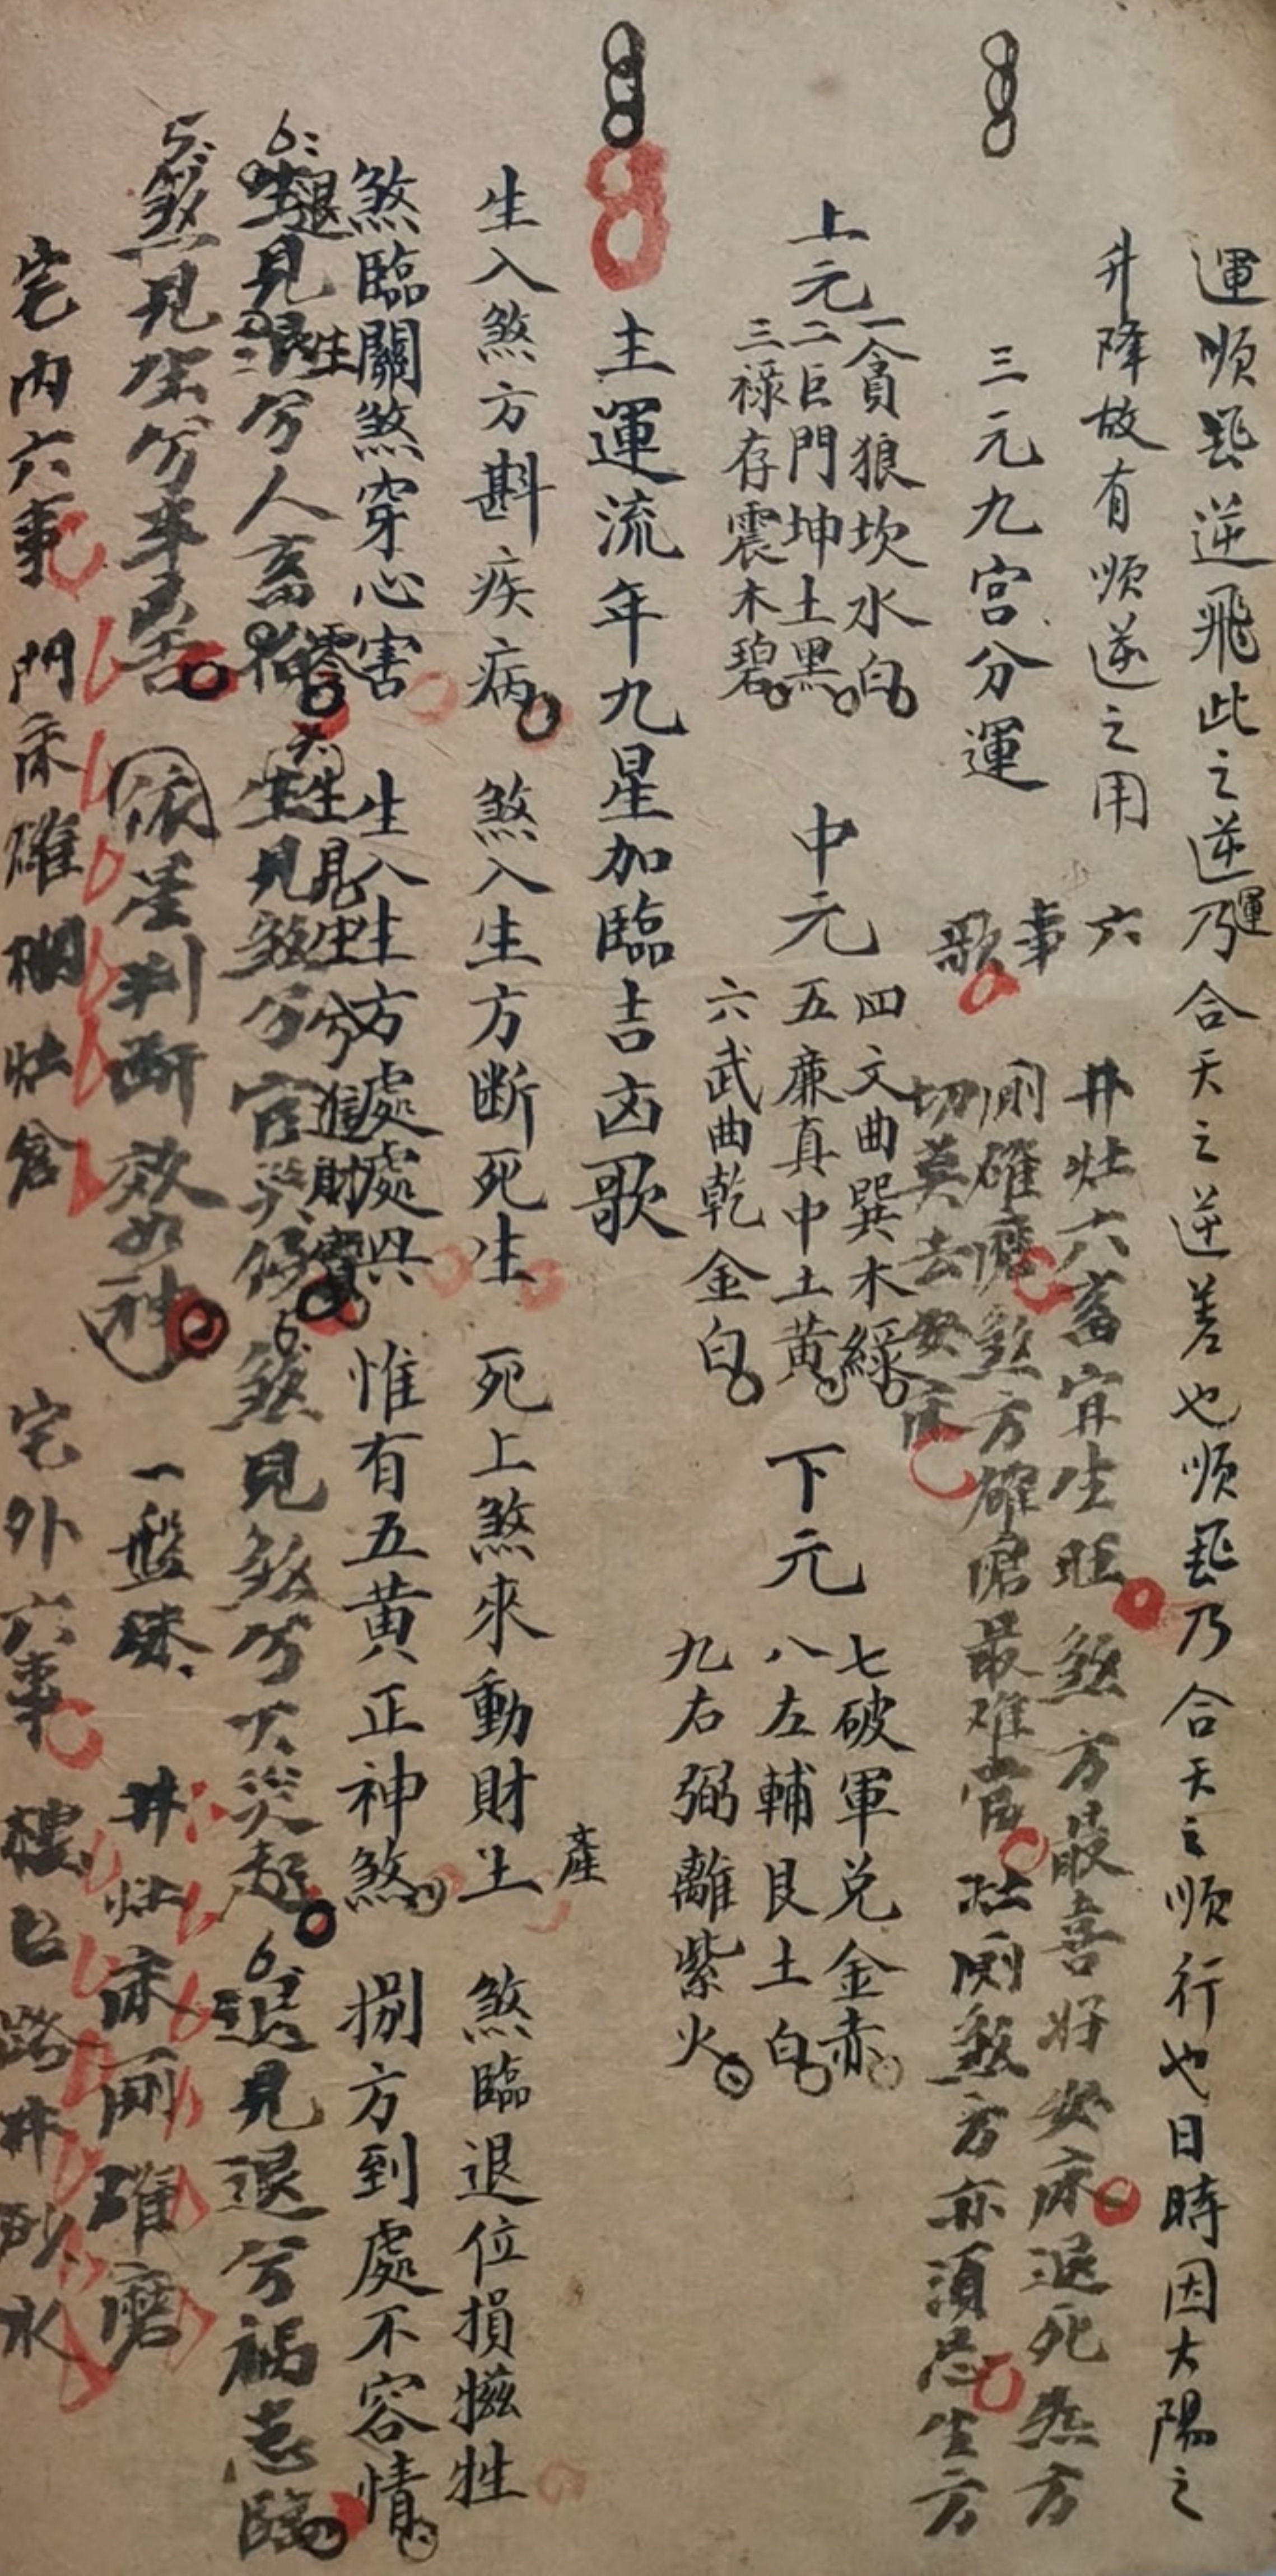 運順飛逆飛此之逆運乃合天之逆差也順飛乃合天之順行也日時因太陽之
升降故有順逆之用
六事歌
井灶六畜宜生旺煞方最喜好安床退死煞方
厠碓磨煞方碓磨最难當灶厠煞方亦須忌生方
切莫去安床
三元九宫分運
上元
一貪狼坎水白
二巨門坤土黑
三祿存震木碧
中元
四文曲巽木綠
五廉真中土黄
六武曲乾金白
下元
七破軍兑金赤
八左輔艮土白
九右弼離紫火
主運流年九星加臨吉凶歌
生入煞方斟疾病 煞入生方断死生 死上煞來動財産 煞臨退位損犧牲
煞臨關煞穿心害 生入生方處處興 惟有五黄正神煞 捌方到處不容情
生見生兮進財寶
退見生兮人畜
生見煞兮官災 煞見煞兮大災起 退見退兮禍忽臨
煞見生兮事 依星判断效如神 一盤珠 井灶床厠碓磨
宅内六事 門床碓棚灶倉 宅外六事 樓台路井砂水